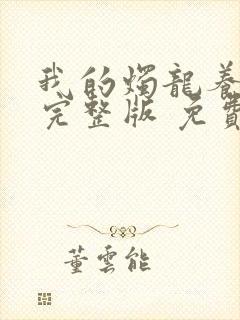 我的燭龍養
完整版 免費
董雲能